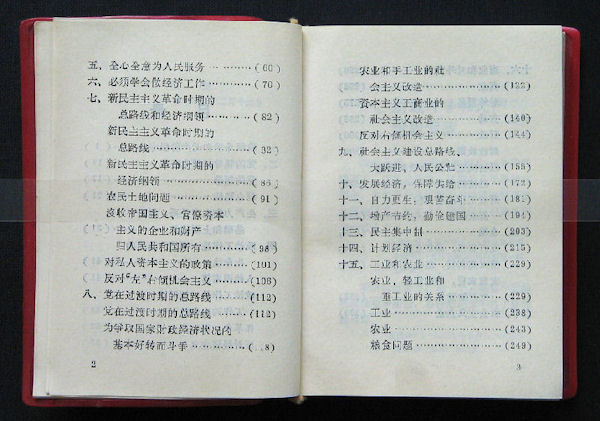 五、全心全意为人民服务 ………(60)
六、必须学会做经济工作 ………(70)
七、新民主主义革命时期的
总路线和经济纲领 ………(82)
新民主主义革命时期的
总路线 ………(82)
新民主主义革命时期的
经济纲领 ………(86)
农民土地问题 ………(91)
没收帝国主义、官僚资本
主义的企业和财产
归人民共和国所有 ………(98)
对私人资本主义的政策 ………(101)
反对“左”右倾机会主义 ………(106)
八、党在过渡时期的总路线 ………(112)
党在过渡时期的总路线 ………(112)
为争取国家财政经济状况的
基本好转而斗争 ………
2
农业和手工业的社
会主义改造 ………(122)
资本主义工商业的
社会主义改造 ………(140)
反对右倾机会主义 ………(144)
九、社会主义建设总路线、
大跃进、人民公社 ………(155)
十、发展经济，保障供给 ………(172)
十一、自力更生，艰苦奋斗 ………(181)
十二、增产节约，勤俭建国 ………(194)
十三、民主集中制 ………(203)
十四、计划经济 ………(215)
十五、工业和农业 ………(229)
农业、轻工业和
重工业的关系 ………(229)
工业 ………(238)
农业 ………(243)
粮食问题 ………(249)
3